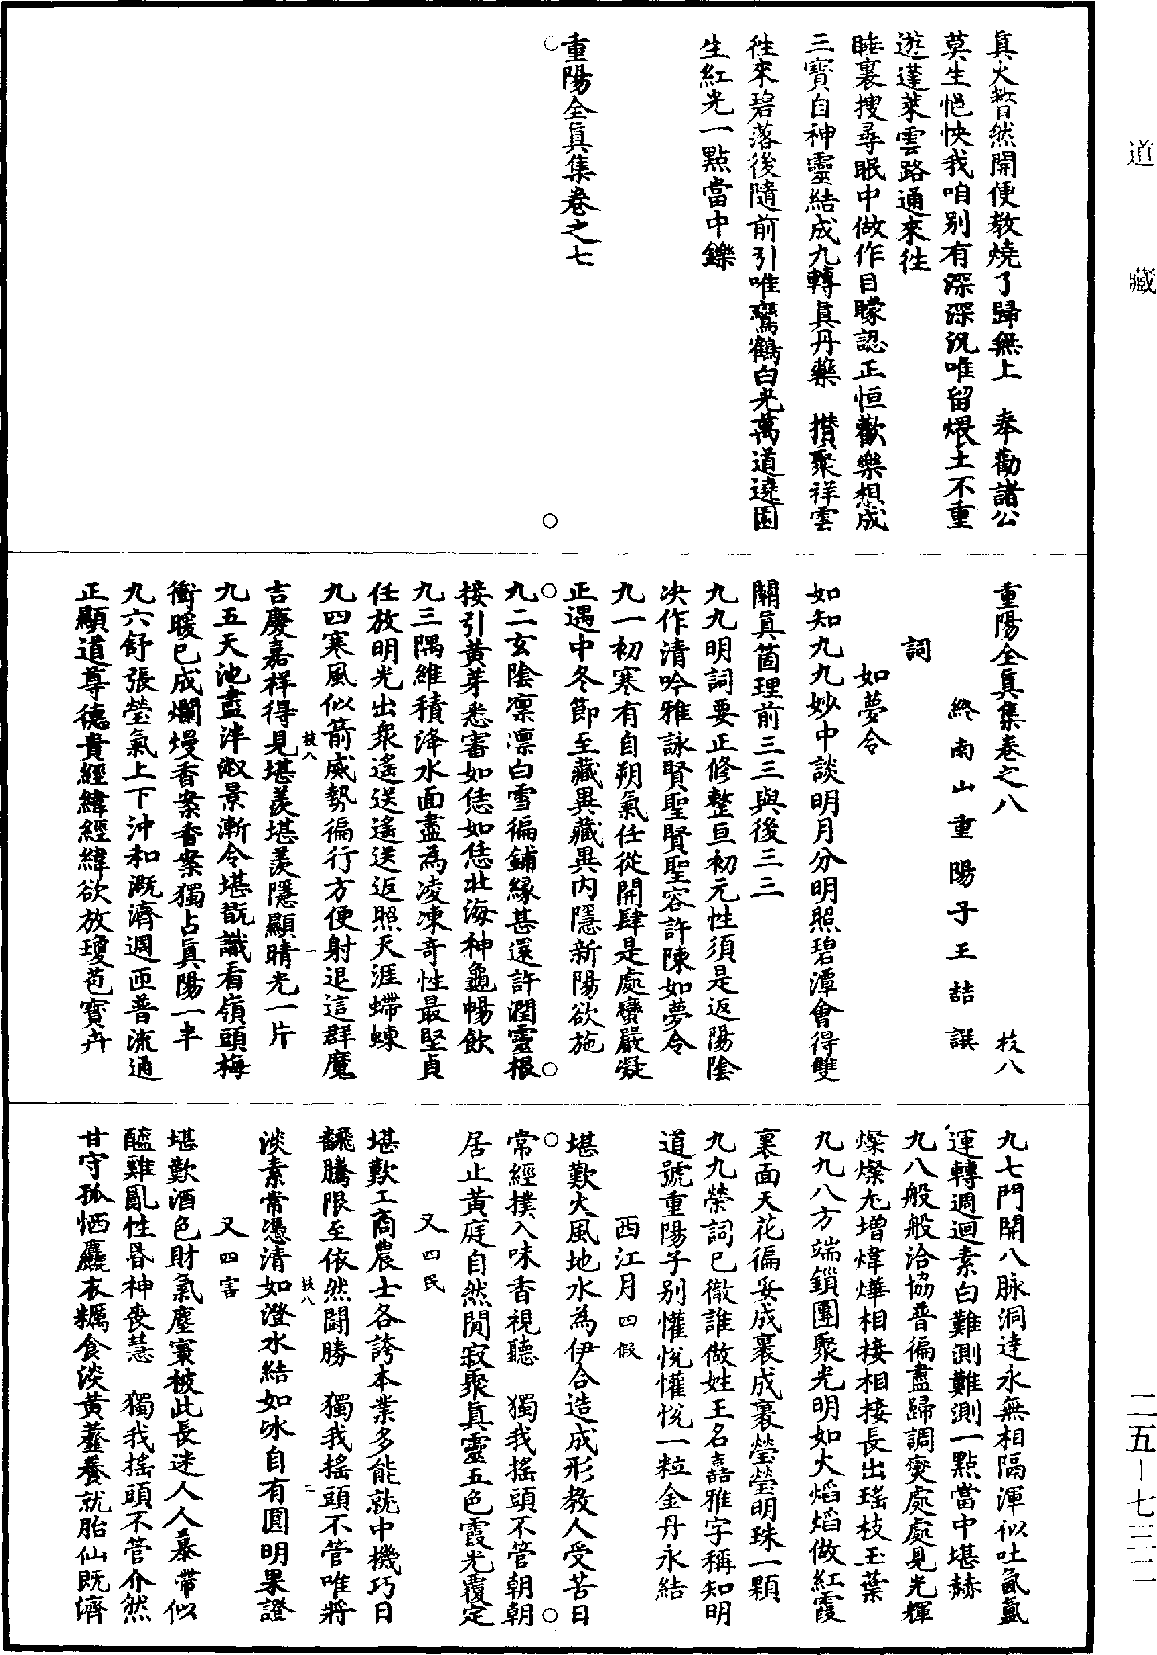 道藏
真火瞥然開便教燒了歸無上　奉勸諸公
莫生悒怏我咱別有深深況唯留煨土不重
遊蓬萊雲路通來往
睡裏搜尋眠中做作目矇認正恒歡樂想成
三寶自神靈結成九轉真丹藥　攢聚祥雲
往來碧落後隨前引唯鸞鶴白光萬道遶困
生紅光一點當中鑠
重陽全真集卷之七
重陽全真集卷之八　枝八
終南山重陽子王嚞撰
詞
如夢令
如知九九妙中談明月分明照碧潭會得雙
關真箇理前三三與後三三
九九明詞要正修整亘初元性須是返陽陰
決作清吟雅詠賢聖賢聖容許陳如夢令
九一初寒有自朔氣任從開肆是處蠻嚴凝
正遇中冬節至藏異藏異內隱新陽欲施
九二玄陰凛凛白雪徧鋪緣甚還許潤靈根
接引黃芽悉審如恁如恁北海神龜暢飲
九三隅維積凈水面盡為凌凍奇性最堅貞
任放明光出衆遙送遙送返照天涯螮蝀
九四寒風似箭威勢徧行方便射退這群魔
吉慶嘉祥得見堪羨堪羨隱顯晴光一片
九五天池盡泮淑景漸令堪翫識看嶺頭梅
衝暖已成爛熳香案香案獨占真陽一半
九六舒張瑩氣上下沖和溉濟週匝普流通
正顯道尊德貴經緯經緯欲放瓊苞寳卉
九七門開八脉洞達永無相隔渾似吐氤氳
運轉週迴素白難測難測一點當中堪赫
九八般般洽協普徧盡歸調爕處處見光輝
燦燦尤增煒燁相接相接長出瑤枝玉葉
九九八方端鎖團聚光明如火熖熖做紅霞
裏面天花徧妥成裹成裹瑩瑩明珠一顆
九九榮詞已徹誰做姓王名嚞雅字稱知明
道號重陽子別懽悅懽悅一粒金丹永結
西江月　四假
堪歎火風地水為伊合造成形教人受苦日
常經撲入味香視聽　獨我搖頭不管朝朝
居止黃庭自然閒寂聚真靈五色霞光覆定
又　四民
堪歎工商農士各誇本業多能就中機巧日
飜騰限至依然鬪勝　獨我搖頭不管唯將
淡素常憑清如澄水結如冰自有圓明果證
又　四害
堪歎酒色財氣塵寰被此長迷人人慕帶似
醯雞亂性昏神喪慧　獨我搖頭不管介然
甘守孤恓麤衣糲食淡黃虀養就胎仙既濟
二五—七三二